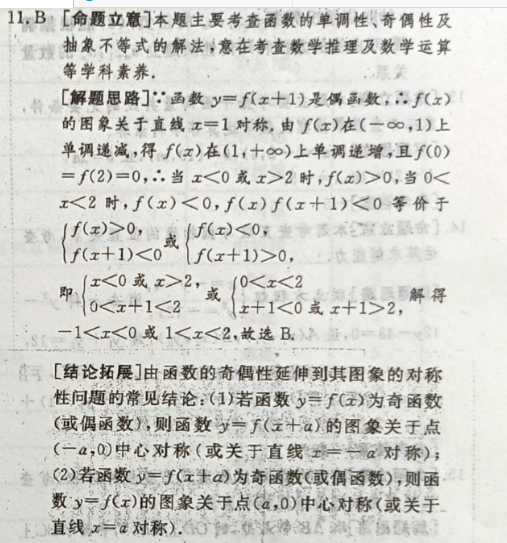 11. B [命题立意]本题主要考查函数的单调性、奇偶性及
抽象不等式的解法,意在考查数学推理及数学运算
等学科素养.
[解题思路]∵函数 y=f(x+1)是偶函数,∴f(x)
的图象关于直线 x=1 对称,由 f(x)在(-∞,1)上
单调递减,得 f(x)在(1,+∞)上单调递增,且f(0)
=f(2)=0,∴当 x<0 或 x>2 时,f(x)>0,当 0<
x<2 时,f(x)<0,f(x)f(x+1)<0 等价于
{f(x)>0, f(x+1)<0 或 {f(x)<0, f(x+1)>0,
即 {x<0 或 x>2, 0<x+1<2 或 {0<x<2 x+1<0 或 x+1>2, 解得
-1<x<0 或 1<x<2,故选 B.
[结论拓展]由函数的奇偶性延伸到其图象的对称
性问题的常见结论:(1)若函数 y=f(x)为奇函数
(或偶函数),则函数 y=f(x+a)的图象关于点
(-a,0)中心对称(或关于直线 x=-a 对称);
(2)若函数 y=f(x+a)为奇函数(或偶函数),则函
数 y=f(x)的图象关于点(a,0)中心对称(或关于
直线 x=a 对称).